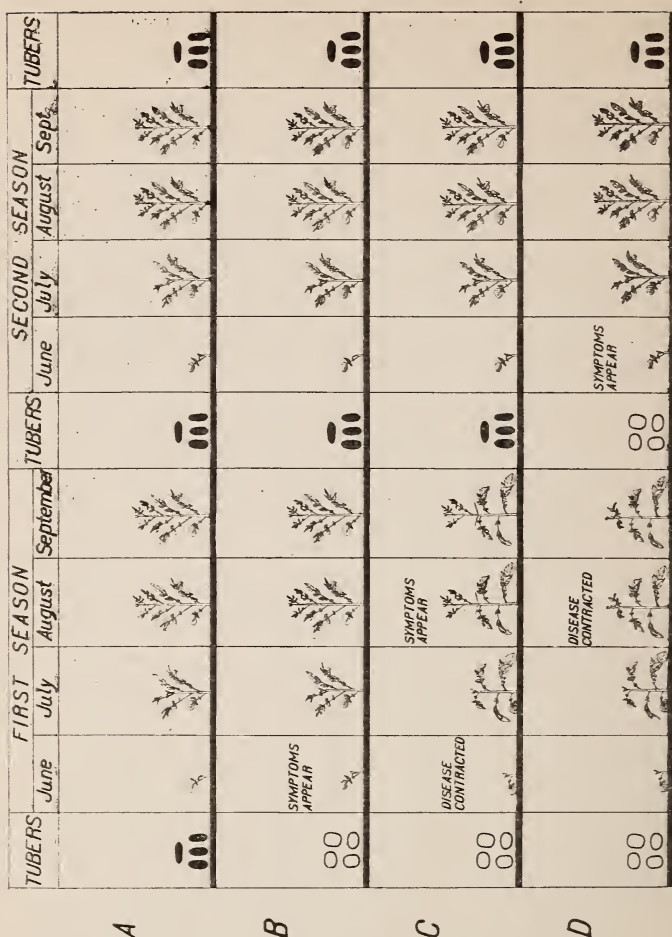 TUBERS FIRST SEASON TUBERS SECOND SEASON TUBERS
June July August September June July August Sept.
A
B
SYMPTOMS
APPEAR
C
DISEASE
CONTRACTED
SYMPTOMS
APPEAR
D
DISEASE
CONTRACTED
SYMPTOMS
APPEAR